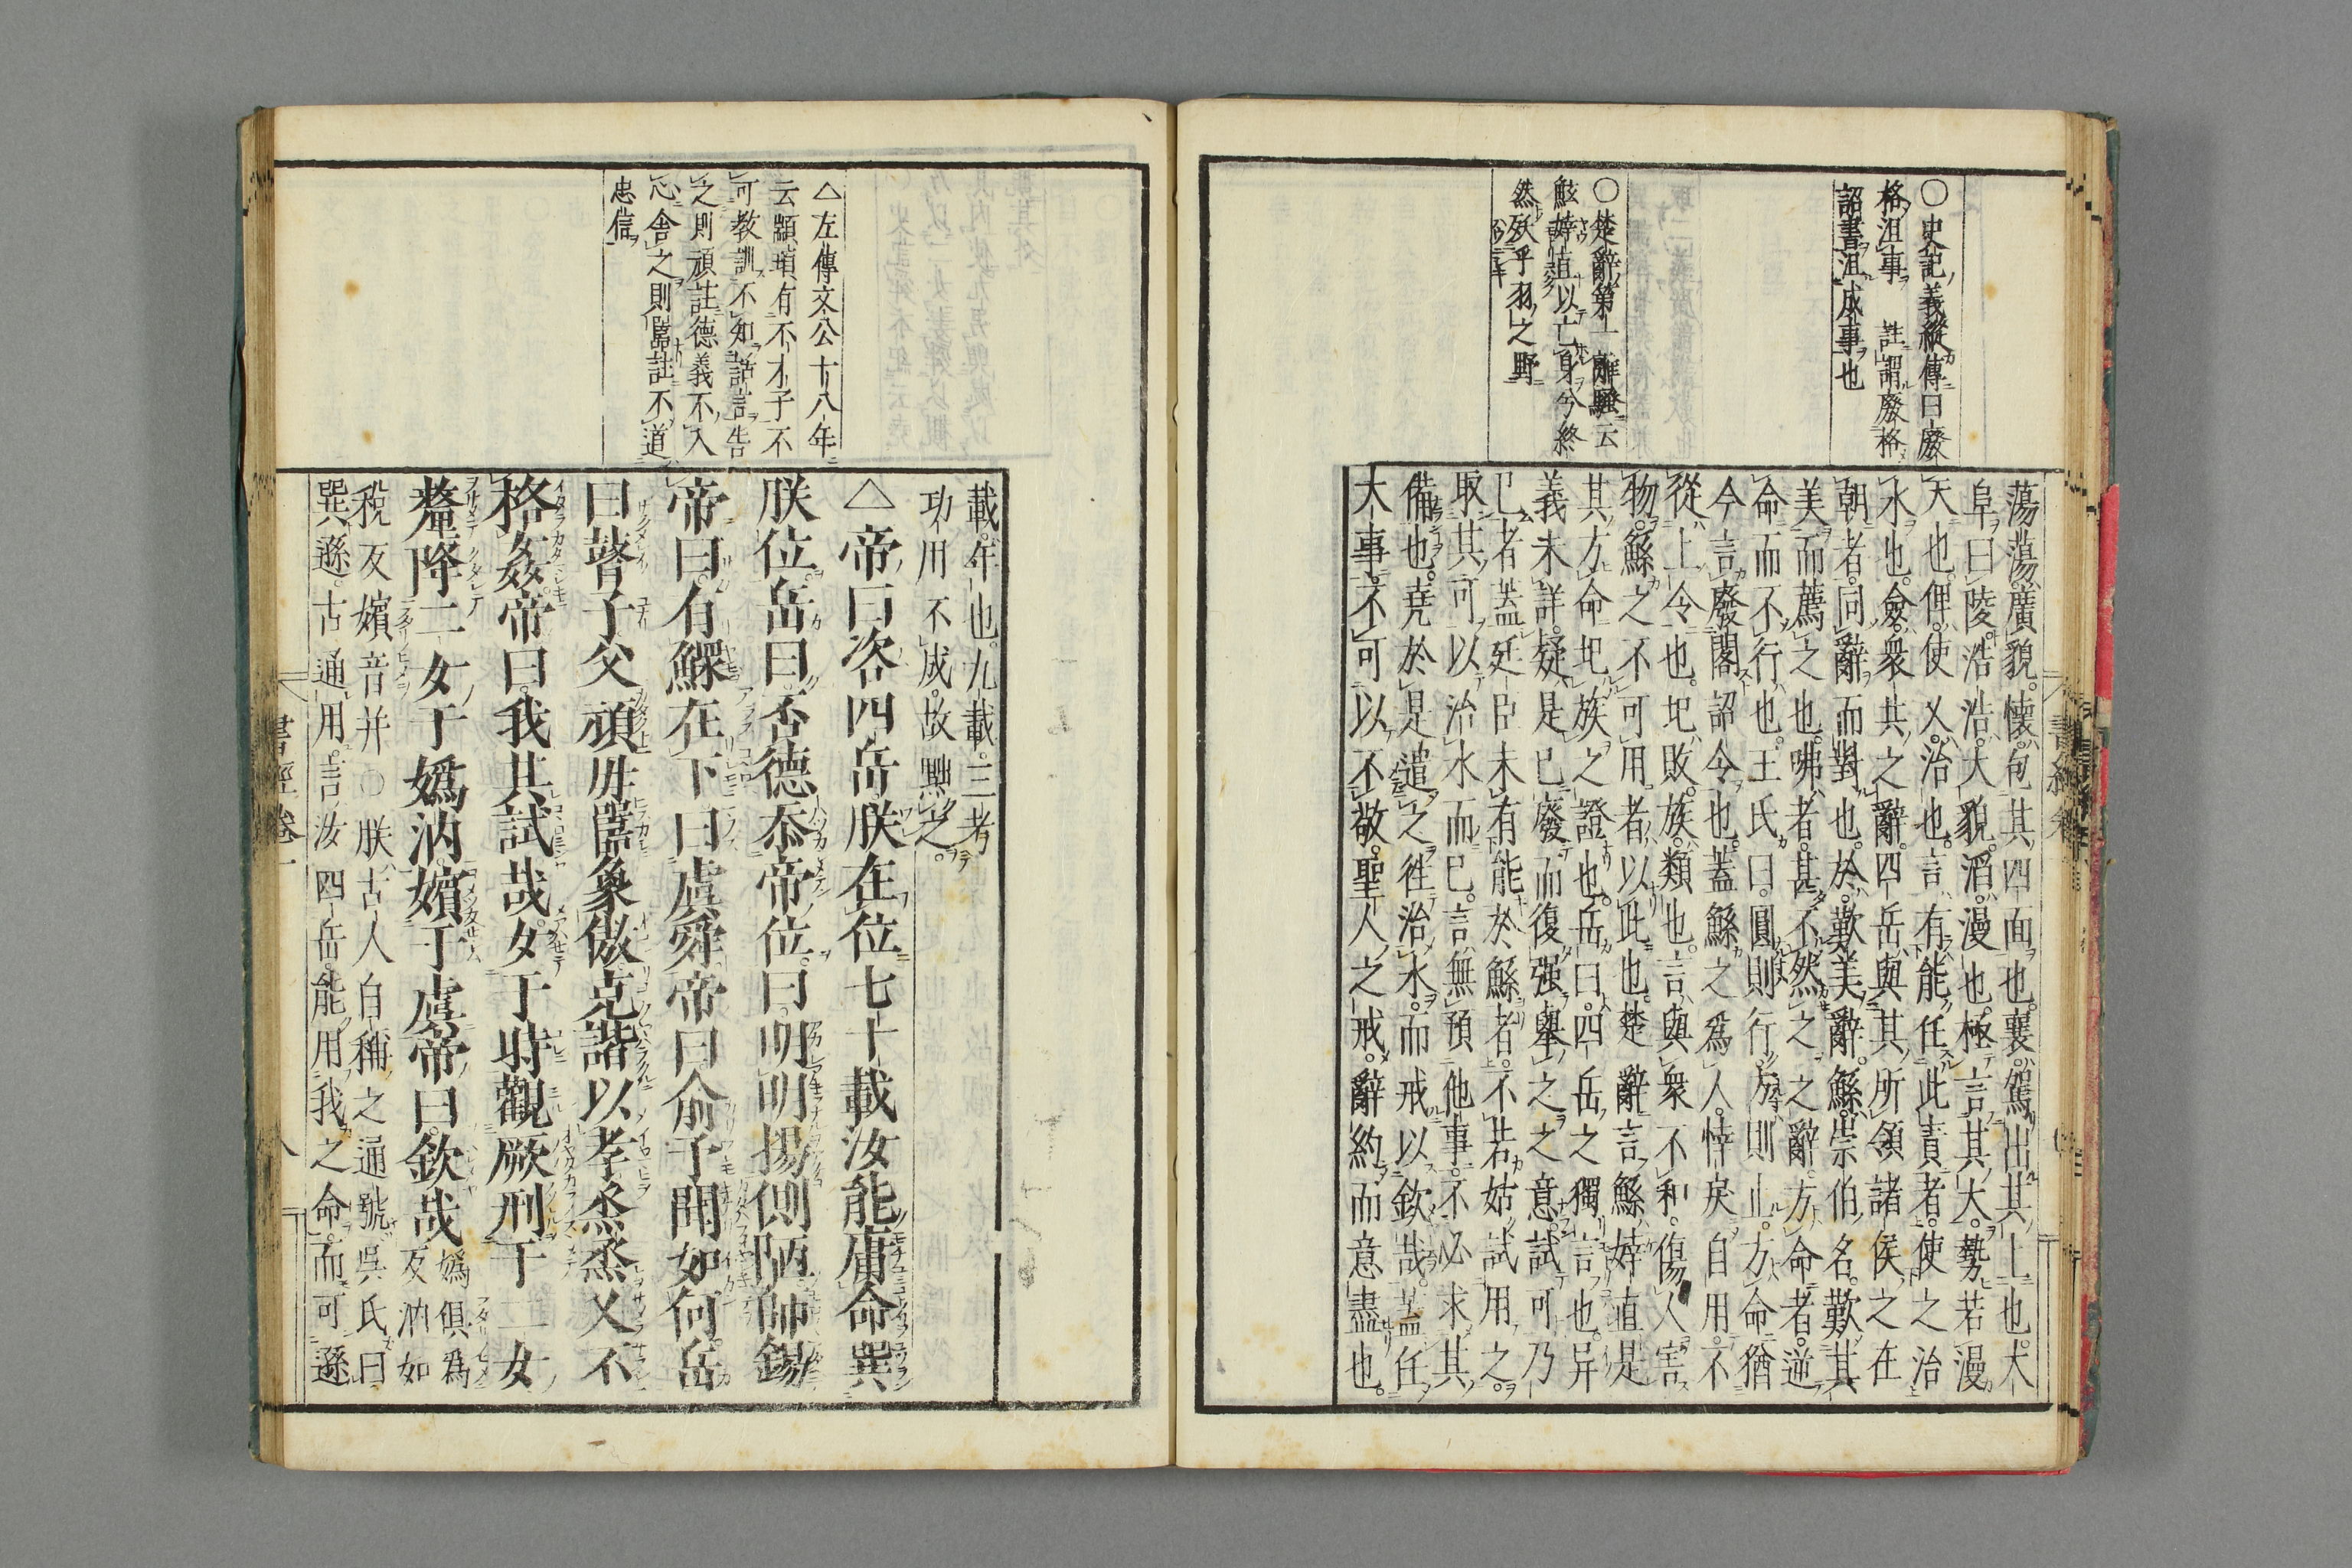 ○史記義縱傳曰廢
格沮事 註謂廢格
詔書沮成事也
○楚辭第一離騷云
鮌婞直以亡身兮終
然殀乎羽之野
蕩蕩。廣貌。懷。包其四面也。襄。駕出其上也。大
阜曰陵。浩浩。大貌。滔。漫也。極言其大。勢若漫
天也。俾。使。乂。治也。言有能任此責者。使之治
水也。僉。衆共之辭。四岳與其所領諸侯之在
朝者。同辭而對也。於。歎美辭。鯀。崇伯名。歎其
美而薦之也。咈者。甚不然之之辭。方命者。逆
命而不行也。王氏曰。圓則行。方則止。方命猶
今言廢閣詔令也。蓋鯀之爲人。悻戾自用。不
從上令也。圮。敗。族。類也。言與衆不和。傷人害
物。鯀之不可用者。以此也。楚辭言鯀婞直是
其方命圮族之證也。岳曰。四岳之獨言也。异
義未詳。疑是已廢而復强舉之之意。試可乃
已者。蓋廷臣未有能於鯀者。不若姑試用之。
取其可以治水而已。言無預他事。不必求其
備也。堯於是遣之往治水。而戒以欽哉。蓋任
大事。不可以不敬。聖人之戒。辭約而意盡也。
△左傳文公十八年
云顓頊有不才子不
可教訓不知話言告
之則頑註德義不入
心舍之則嚚註不道
忠信
載。年也。九載。三考
功用不成。故黜之。
△帝曰咨四岳朕在位七十載汝能庸命巽
朕位岳曰否德忝帝位。曰明明揚側陋師錫
帝曰。有鰥在下曰虞舜帝曰俞予聞如何岳
曰瞽子父頑母嚚象傲克諧以孝烝烝乂不
格姦。帝曰我其試哉。女于時觀厥刑于二女
釐降二女于嬀汭嬪于虞帝曰。欽哉 嬀俱爲
反汭如
稅反嬪音幷○朕。古人自稱之通號。吳氏曰
巽遜。古通用。言汝四岳。能用我之命。而可遜
書經卷一
八